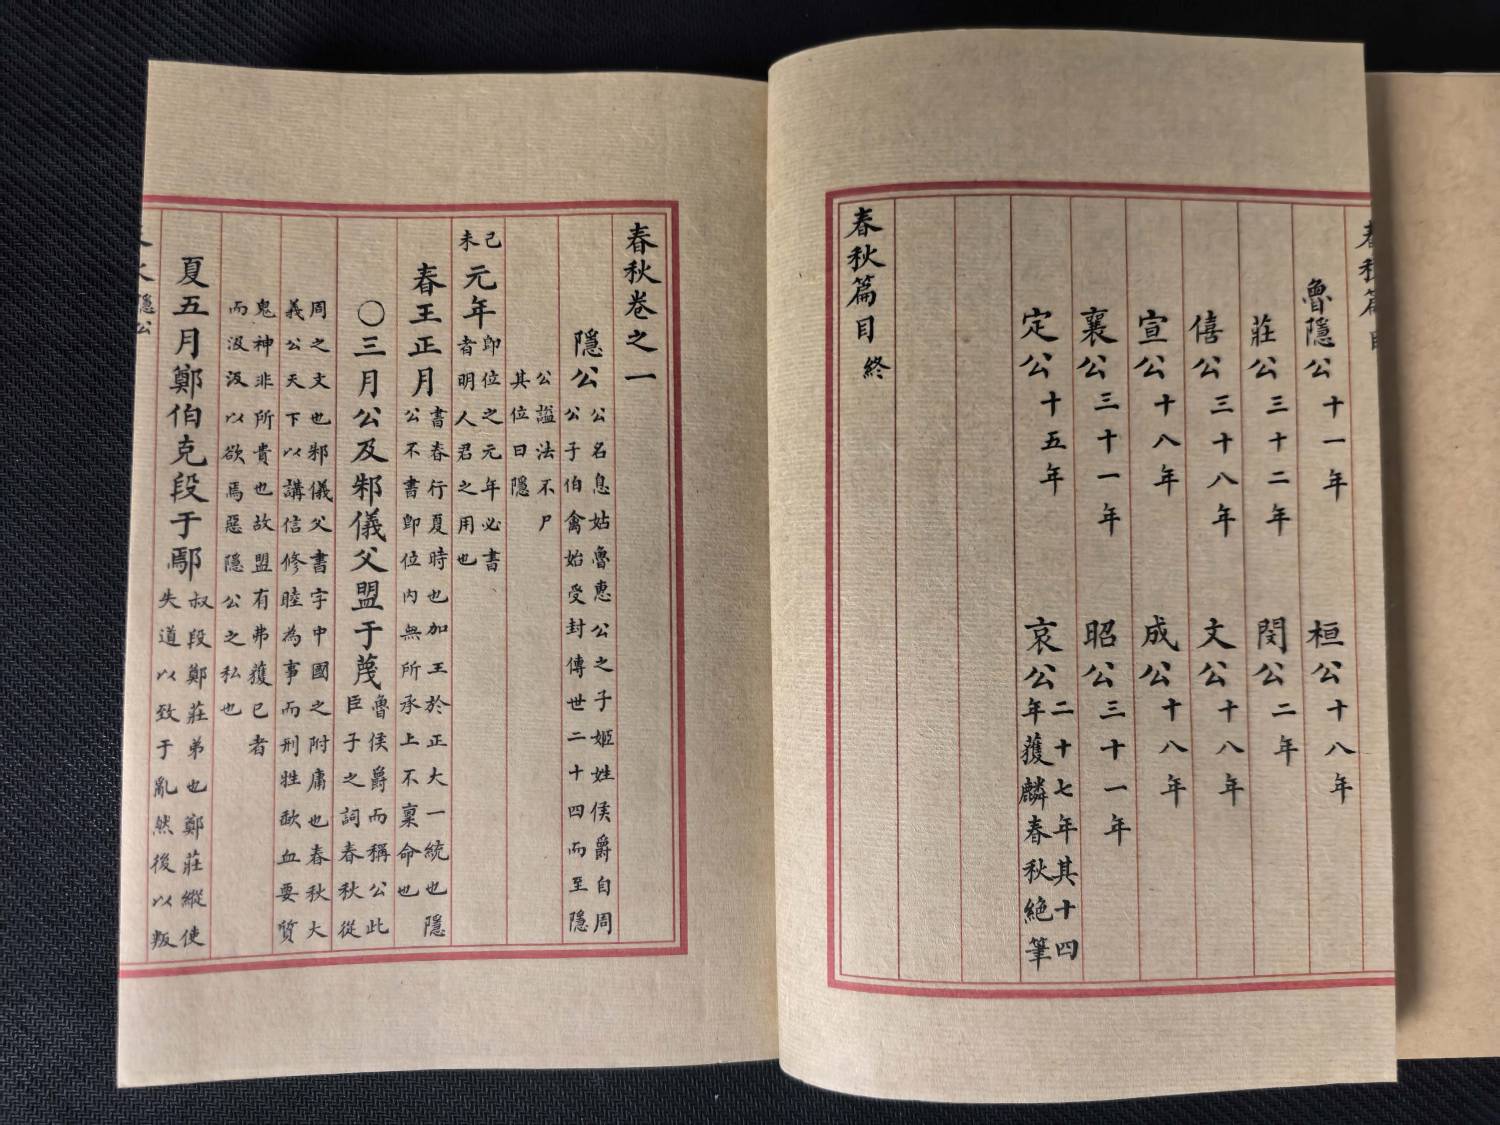 魯隱公十一年 桓公十八年
莊公三十二年 閔公二年
僖公三十八年 文公十八年
宣公十八年 成公十八年
襄公三十一年 昭公三十一年
定公十五年 哀公二十七年其十四
年蓌麟春秋絶筆
春秋篇目終
春秋卷之一
隱公公名息姑魯惠公之子姬姓侯爵自周
公子伯禽始受封傳世二十四而至隱
公謚法不尸
其位曰隱
己未元年即位之元年必書
者明人君之用也
春王正月書春行夏時也加王於正大一統也隱
公不書即位内無所承上不稟命也
〇三月公及邾儀父盟于蔑魯侯爵而稱公此
臣子之詞春秋從
周之文也邾儀父書字中國之附庸也春秋大
義公天下以講信修睦為事而刑牲歃血要質
鬼神非所貴也故盟有弗獲已者
而汲汲以欲焉惡隱公之私也
夏五月鄭伯克段于鄢叔段鄭莊弟也鄭莊縱使
失道以致于亂然後以叛
隱公